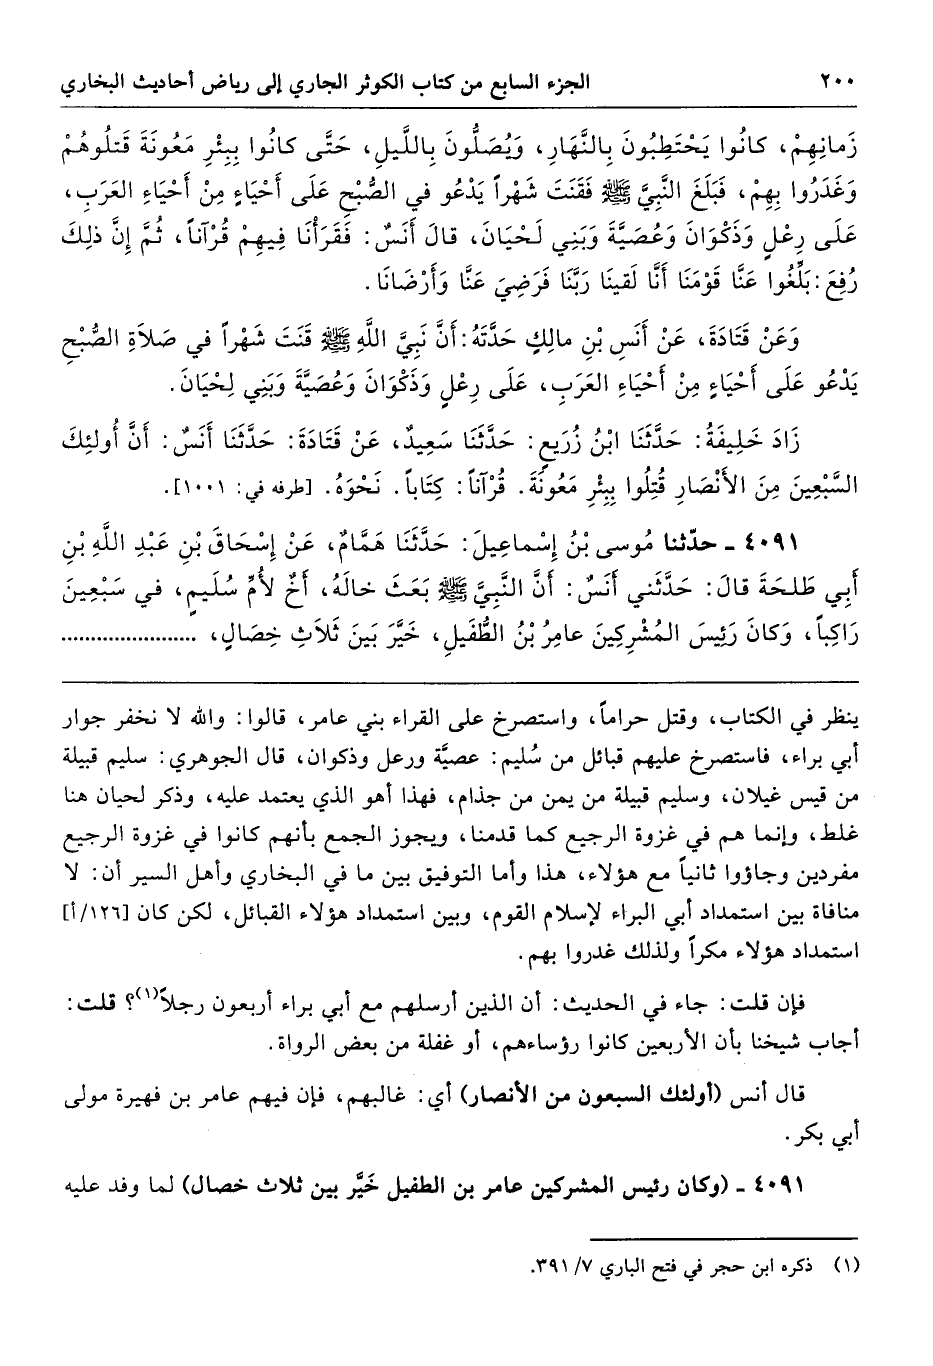 ٢٠٠ الجزء السابع من كتاب الكوثر الجاري إلى رياض أحاديث البخاري
زَمانِهِمْ، كانُوا يَحْتَطِبُونَ بِالنَّهَارِ، وَيُصَلُّونَ بِاللَّيلِ، حَتَّى كانُوا بِبِئْرِ مَعُونَةَ قَتلُوهُمْ
وَغَدَرُوا بِهِمْ، فَبَلَغَ النَّبِيَّ ﷺ فَقَنَتَ شَهْراً يَدْعُو في الصُّبْحِ عَلَى أَحْيَاءٍ مِنْ أَحْيَاءِ العَرَبِ،
عَلَى رِعْلٍ وَذَكْوَانَ وَعُصَيَّةَ وَبَنِي لَحْيَانَ، قالَ أَنَسٌ: فَقَرَأْنَا فِيهِمْ قُرْآناً، ثُمَّ إِنَّ ذلِكَ
رُفِعَ: بَلِّغُوا عَنَّا قَوْمَنَا أَنَّا لَقينَا رَبَّنَا فَرَضِيَ عَنَّا وَأَرْضَانَا.
وَعَنْ قَتَادَةَ، عَنْ أَنَسِ بْنِ مالِكٍ حَدَّثَهُ: أَنَّ نَبِيَّ اللَّهِ ﷺ قَنَتَ شَهْراً في صَلاَةِ الصُّبْحِ
يَدْعُو عَلَى أَحْيَاءٍ مِنْ أَحْيَاءِ العَرَبِ، عَلَى رِعْلٍ وَذَكْوَانَ وَعُصَيَّةَ وَبَنِي لِحْيَانَ.
زَادَ خَلِيفَةُ: حَدَّثَنَا ابْنُ زُرَيعٍ: حَدَّثَنَا سَعِيدٌ، عَنْ قَتَادَةَ: حَدَّثَنَا أَنَسٌ: أَنَّ أُولئِكَ
السَّبْعِينَ مِنَ الأَنْصَارِ قُتِلُوا بِبِئْرِ مَعُونَةَ. قُرْآناً: كِتَاباً. نَحْوَهُ. [طرفه في: ١٠٠١].
٤٠٩١ ـ حدّثنا مُوسى بْنُ إِسْماعِيلَ: حَدَّثَنَا هَمَّامٌ، عَنْ إِسْحَاقَ بْنِ عَبْدِ اللَّهِ بْنِ
أَبِي طَلحَةَ قالَ: حَدَّثَني أَنَسٌ: أَنَّ النَّبِيَّ ﷺ بَعَثَ خالَهُ، أَخٌ لأُمِّ سُلَيمٍ، في سَبْعِينَ
رَاكِباً، وَكانَ رَئِيسَ المُشْرِكِينَ عامِرُ بْنُ الطُّفَيلِ، خَيَّرَ بَينَ ثَلاَثِ خِصَالٍ، .......................
ينظر في الكتاب، وقتل حراماً، واستصرخ على القراء بني عامر، قالوا: والله لا نخفر جوار
أبي براء، فاستصرخ عليهم قبائل من سُليم: عصيَّة ورعل وذكوان، قال الجوهري: سليم قبيلة
من قيس غيلان، وسليم قبيلة من يمن من جذام، فهذا أهو الذي يعتمد عليه، وذكر لحيان هنا
غلط، وإنما هم في غزوة الرجيع كما قدمنا، ويجوز الجمع بأنهم كانوا في غزوة الرجيع
مفردين وجاؤوا ثانياً مع هؤلاء، هذا وأما التوفيق بين ما في البخاري وأهل السير أن: لا
منافاة بين استمداد أبي البراء لإسلام القوم، وبين استمداد هؤلاء القبائل، لكن كان [١٢٦/أ]
استمداد هؤلاء مكراً ولذلك غدروا بهم.
فإن قلت: جاء في الحديث: أن الذين أرسلهم مع أبي براء أربعون رجلاً(١)؟ قلت:
أجاب شيخنا بأن الأربعين كانوا رؤساءهم، أو غفلة من بعض الرواة.
قال أنس (أولئك السبعون من الأنصار) أي: غالبهم، فإن فيهم عامر بن فهيرة مولى
أبي بكر.
٤٠٩١ ـ (وكان رئيس المشركين عامر بن الطفيل خَيَّر بين ثلاث خصال) لما وفد عليه
(١) ذكره ابن حجر في فتح الباري ٧/ ٣٩١.